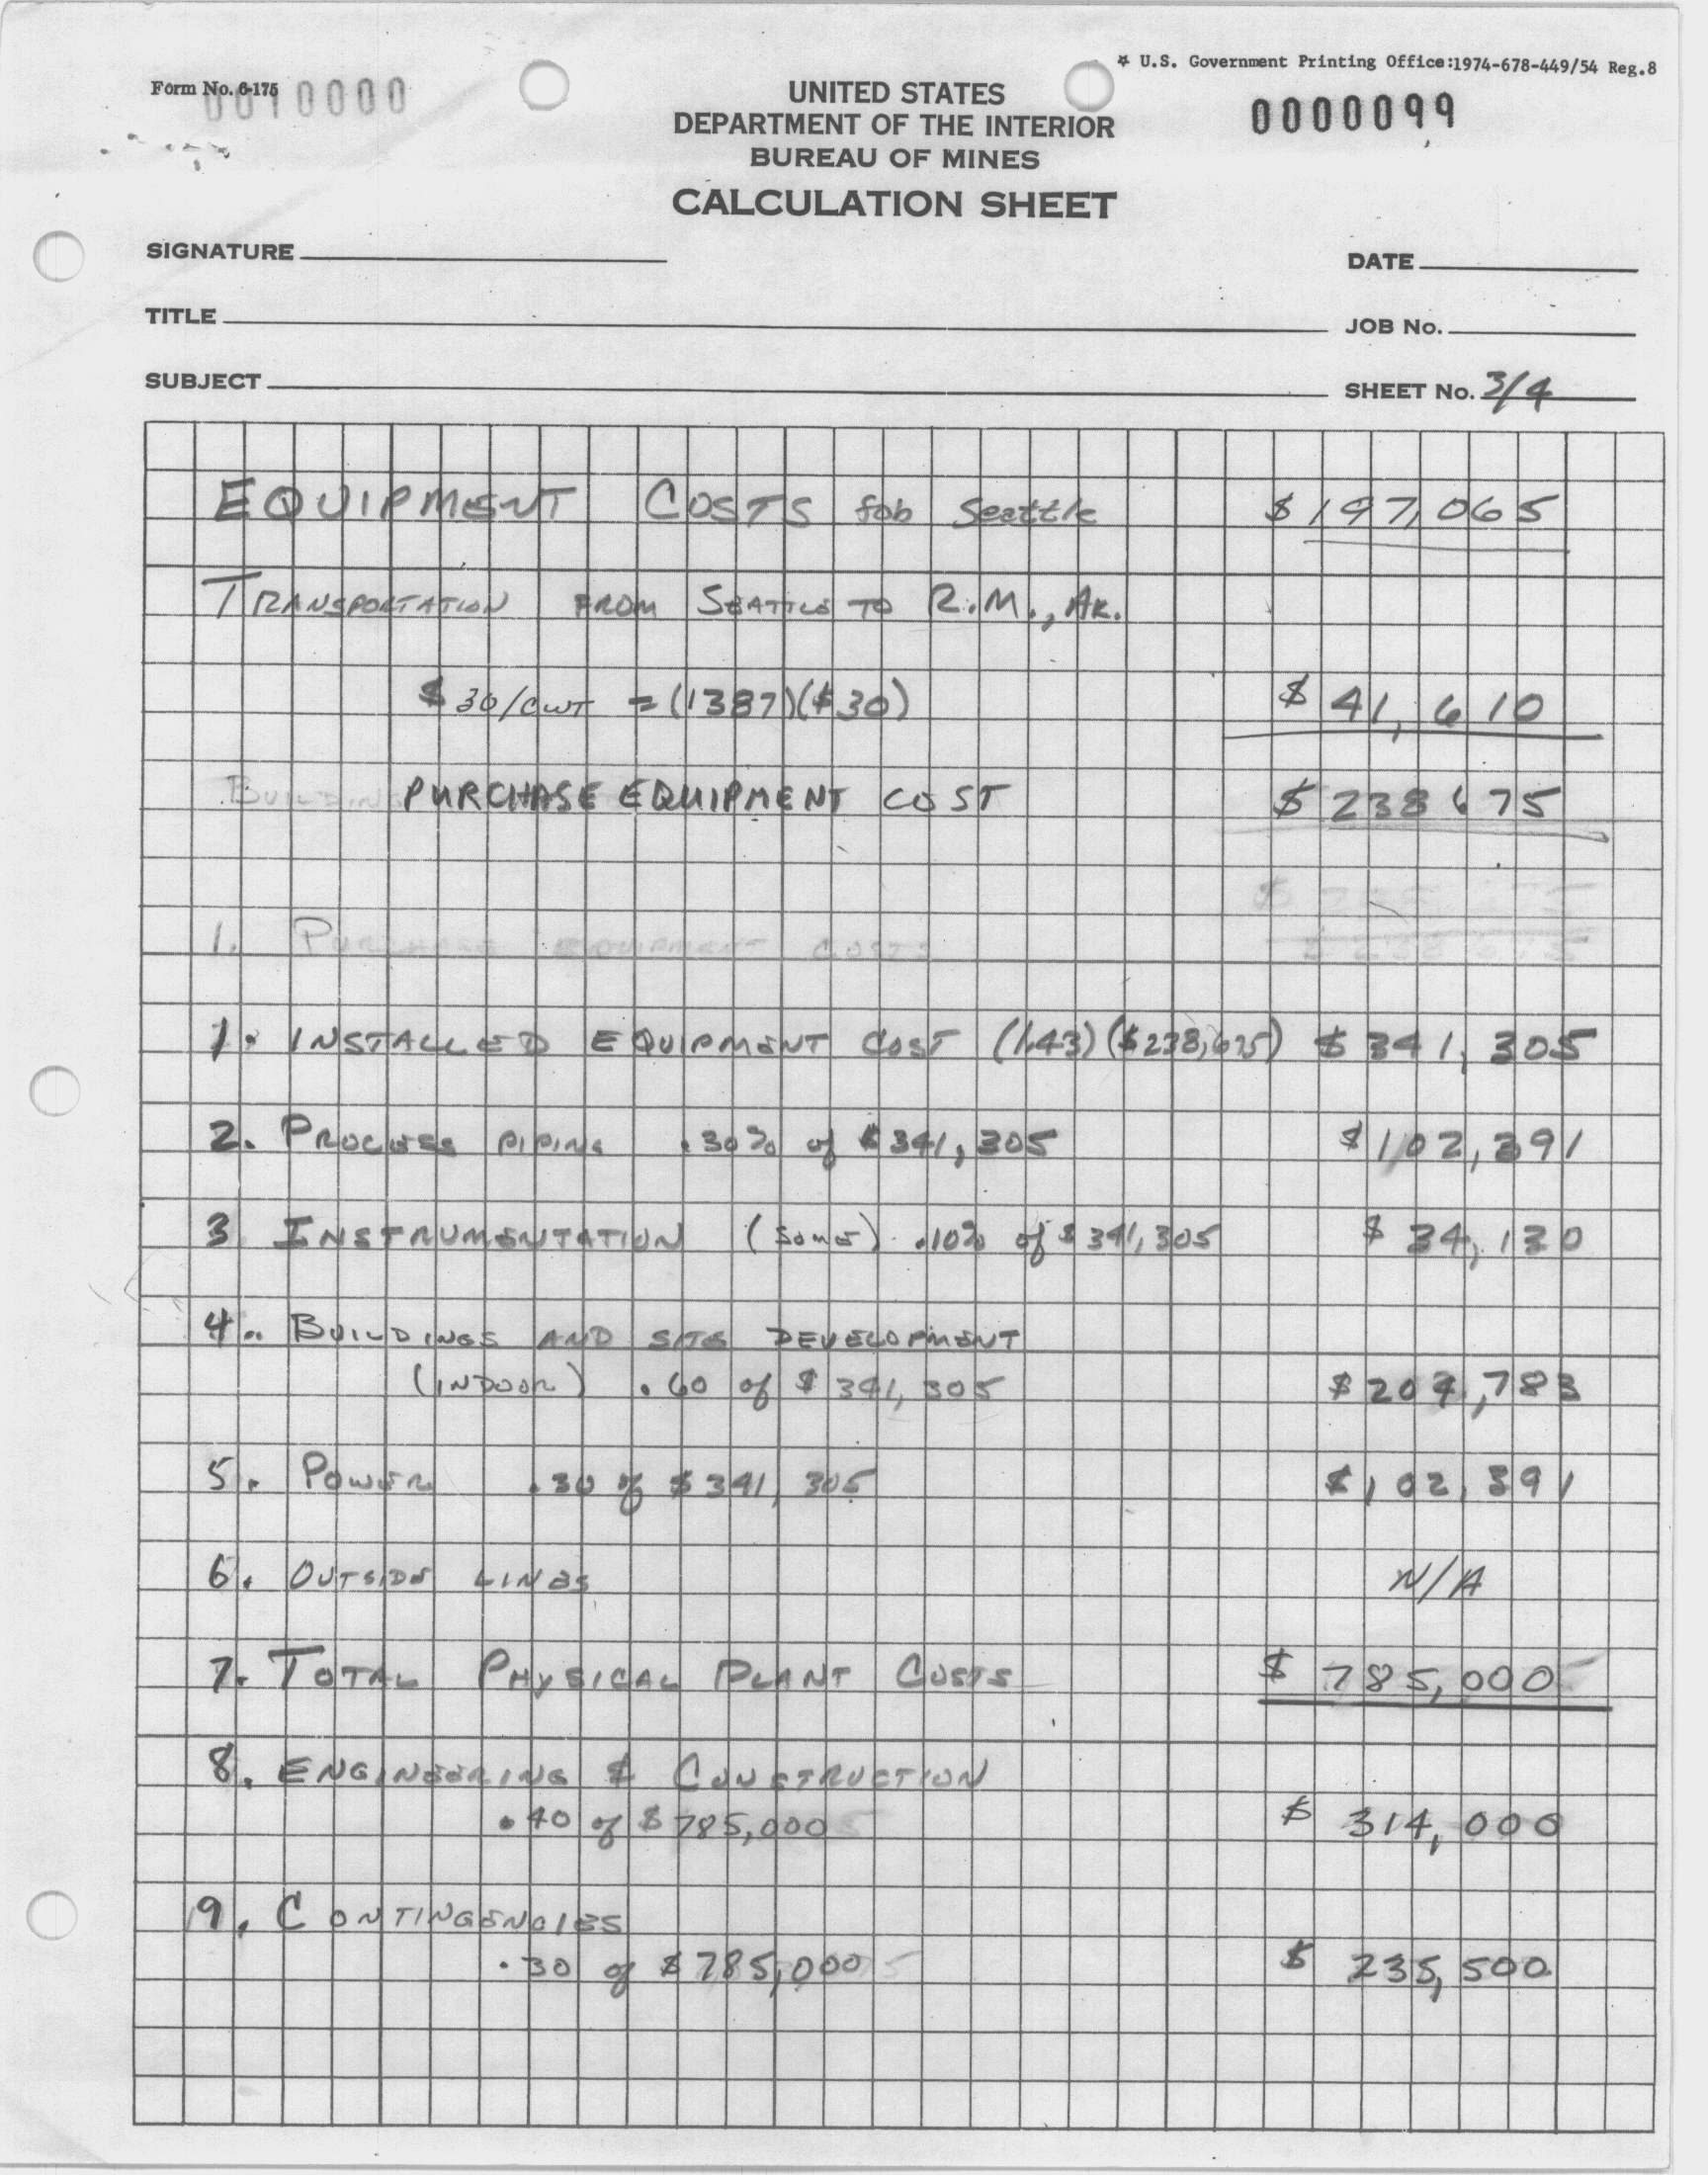 * U.S. Government Printing Office:1974-678-449/54 Reg.8
Form No. 6-175
0010000
UNITED STATES
DEPARTMENT OF THE INTERIOR
BUREAU OF MINES
CALCULATION SHEET
0000099
SIGNATURE
DATE
TITLE
JOB No.
SUBJECT
SHEET No. 3/4
EQUIPMENT COSTS fob Seattle $197,065
TRANSPORTATION FROM SEATTLE TO R.M., AK.
$30/CWT = (1387)($30) $41,610
PURCHASE EQUIPMENT COST $238675
1. PURCHASE EQUIPMENT COSTS
1. INSTALLED EQUIPMENT COST (1.43)($238,675) $341,305
2. PROCESS PIPING .30% of $341,305 $102,391
3 INSTRUMENTATION (some) .10% of $341,305 $34,130
4. BUILDINGS AND SITE DEVELOPMENT
(INDOOR) .60 of $341,305 $204,783
5. POWER .30 of $341,305 $102,391
6. OUTSIDE LINES N/A
7. TOTAL PHYSICAL PLANT COSTS $785,000
8. ENGINEERING & CONSTRUCTION
.40 of $785,000 $314,000
9. CONTINGENCIES
.30 of $785,000 $235,500